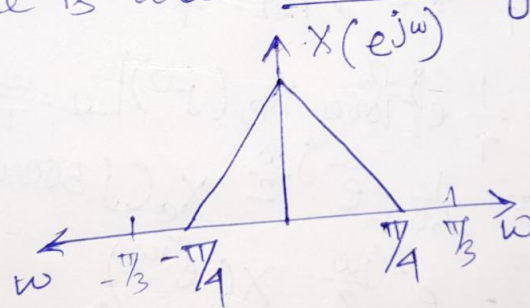 X(e^jω)
-π/3 -π/4 π/4 π/3
ω ω